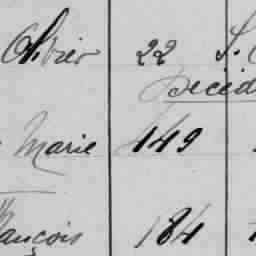 Olivier 22 S.
Décéd
Marie 149
François 184